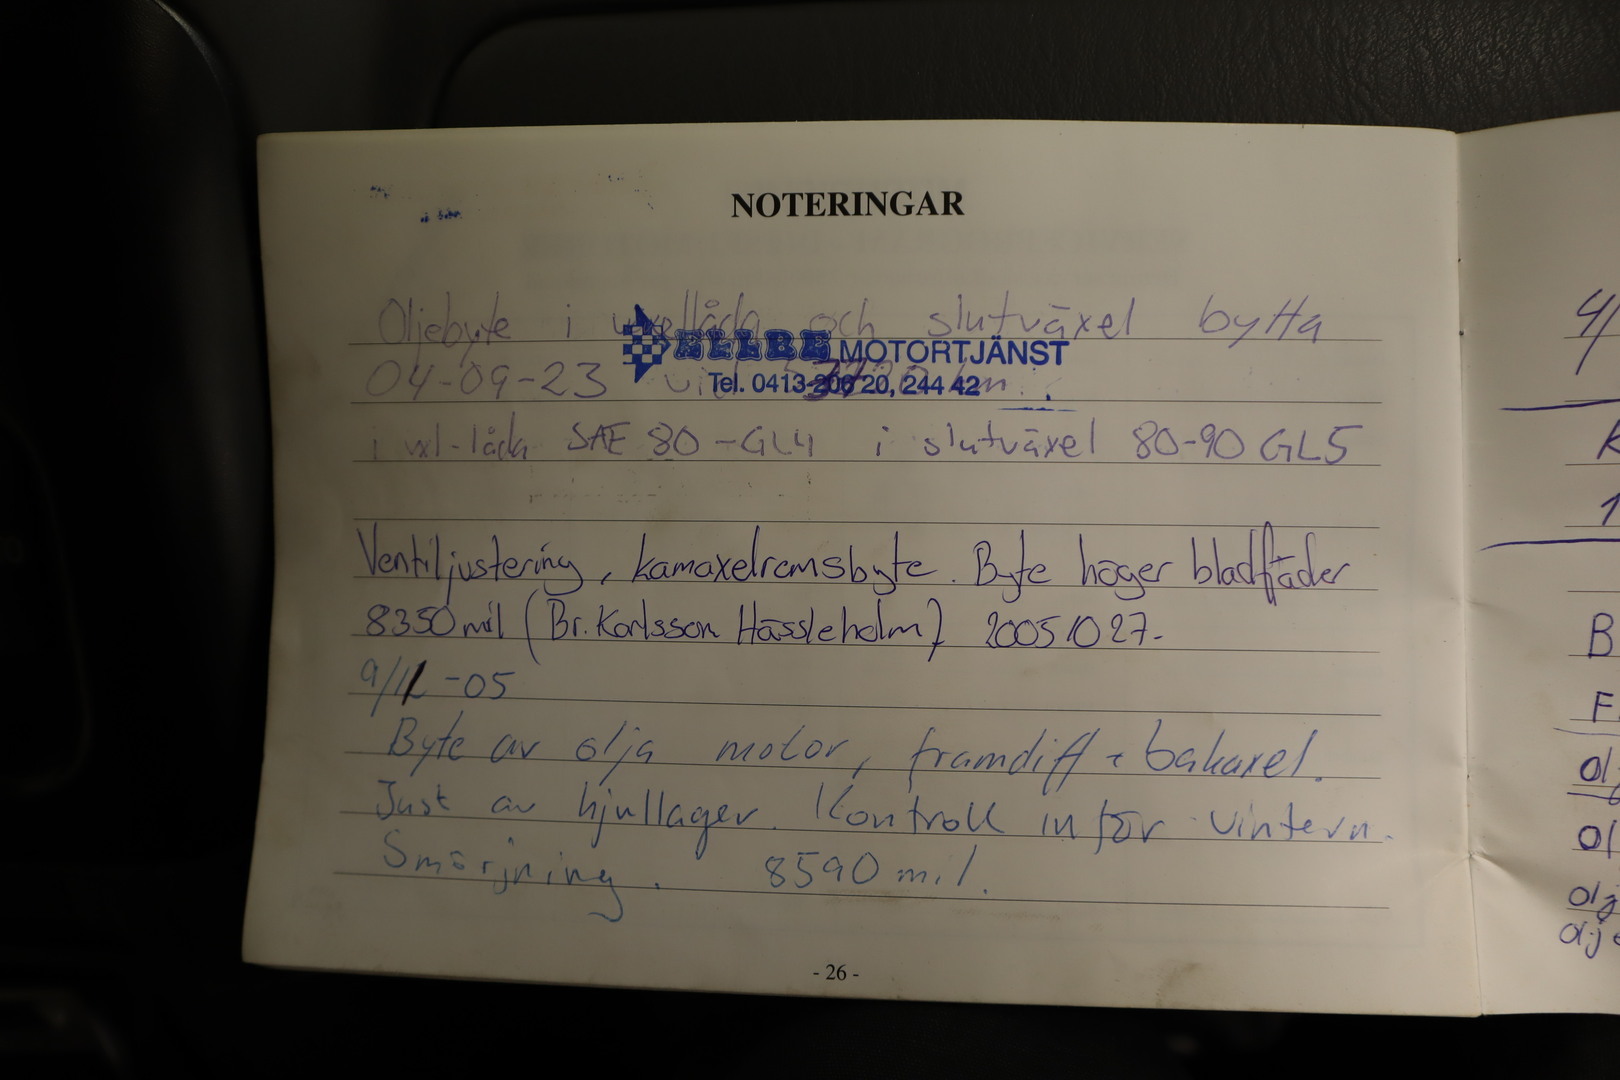 NOTERINGAR
Oljebyte i växellåda och slutväxel bytta
ELLBE MOTORTJÄNST
04-09-23 vid
Tel. 0413-206 20, 244 42
i vxl-låda SAE 80-GL4 i slutväxel 80-90 GL5
Ventiljustering, kamaxelremsbyte. Byte höger bladfjäder
8350 mil (Br. Karlsson Hässleholm) 20051027-
9/11 -05
Byte av olja motor, framdiff + bakaxel.
Just av hjullager. Kontroll inför vintern.
Smörjning. 8590 mil.
- 26 -
4/
K
1
B
F.
ol
ol
olj
olje